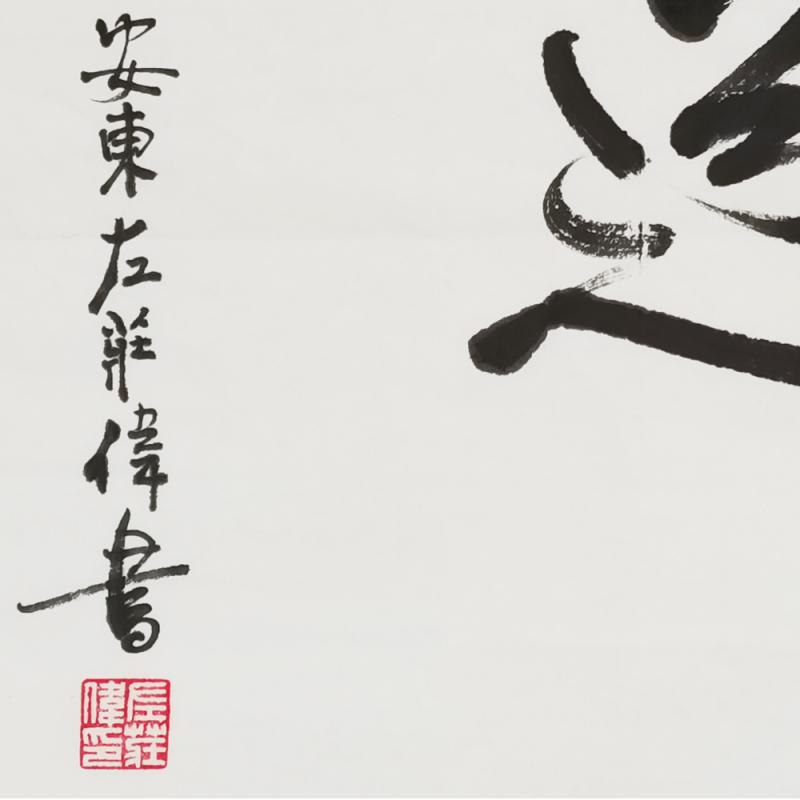 安東左莊偉書
左莊
偉印